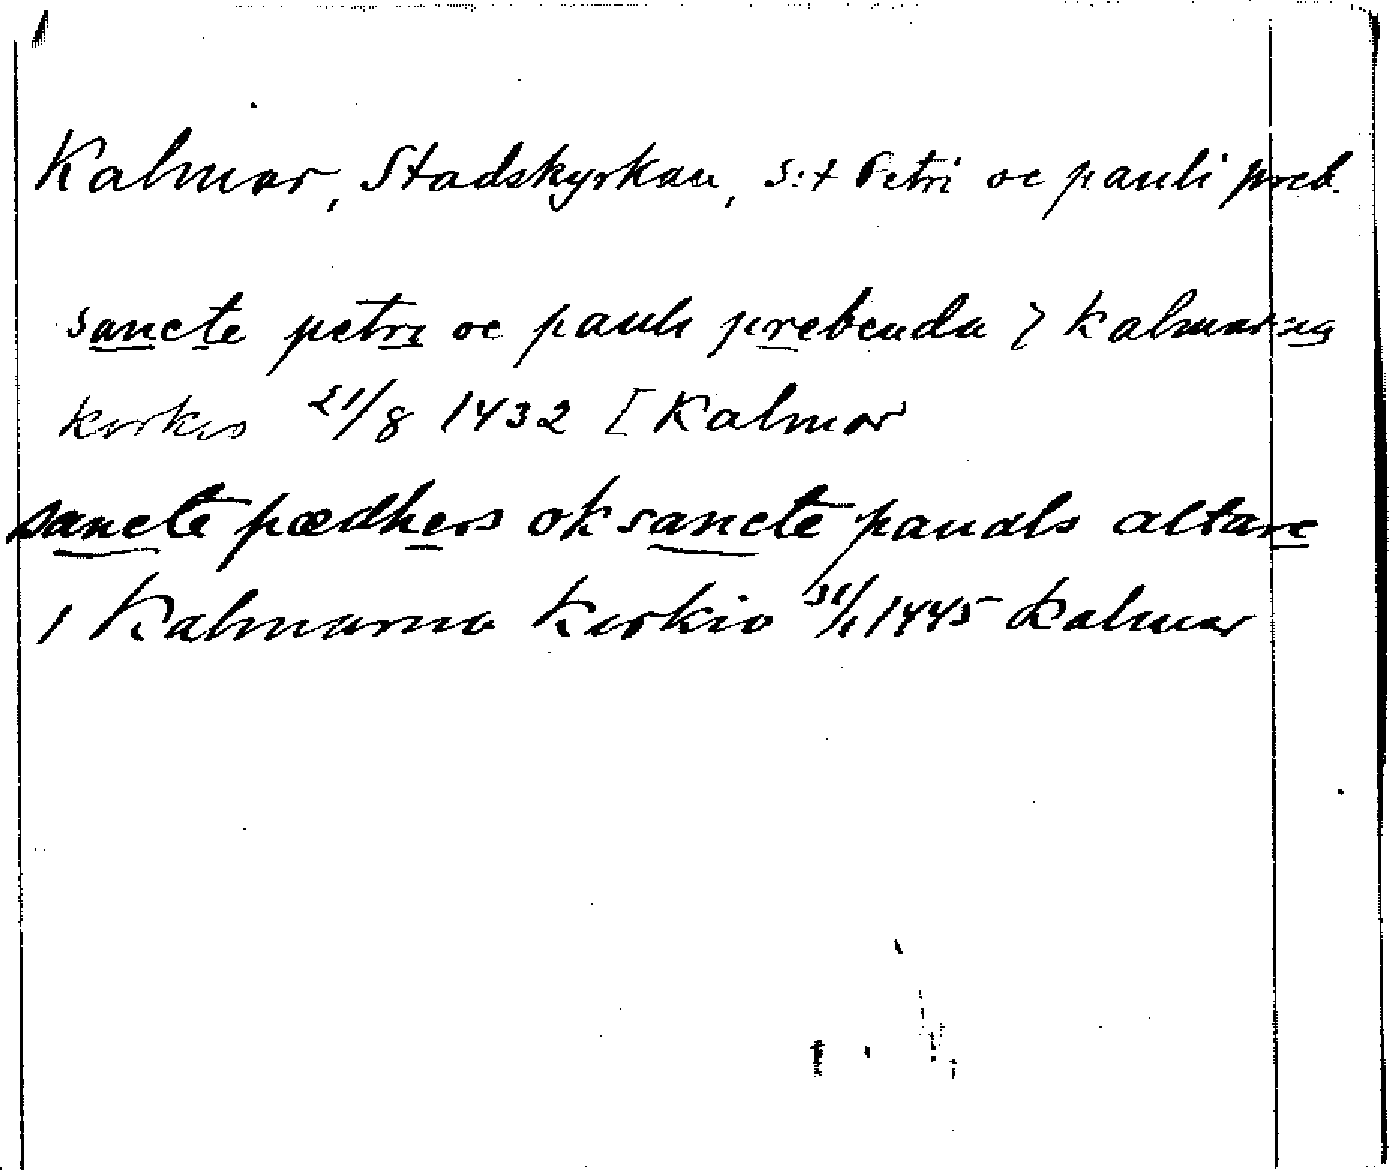 Kalmar, Stadskyrkan, S:t Petri oc pauli preb.
sancte petri oc pauli prebenda j kalmarna
kirkio 21/8 1432 [Kalmar
sancte pædhers ok sancte pauals altare
i Kalmarna kirkio 31/1 1445 Kalmar